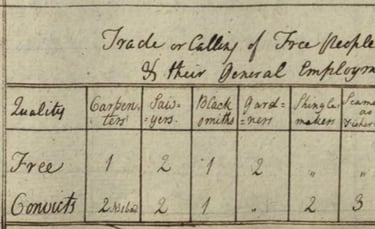 Trade or Calling of Free People
& their General Employm
Quality Carpen= ters Saw= =yers Black smiths Gard= =ners Shingle makers Seame as Fisher
Free 1 2 1 2 " "
Convicts 2 2 1 " 2 3